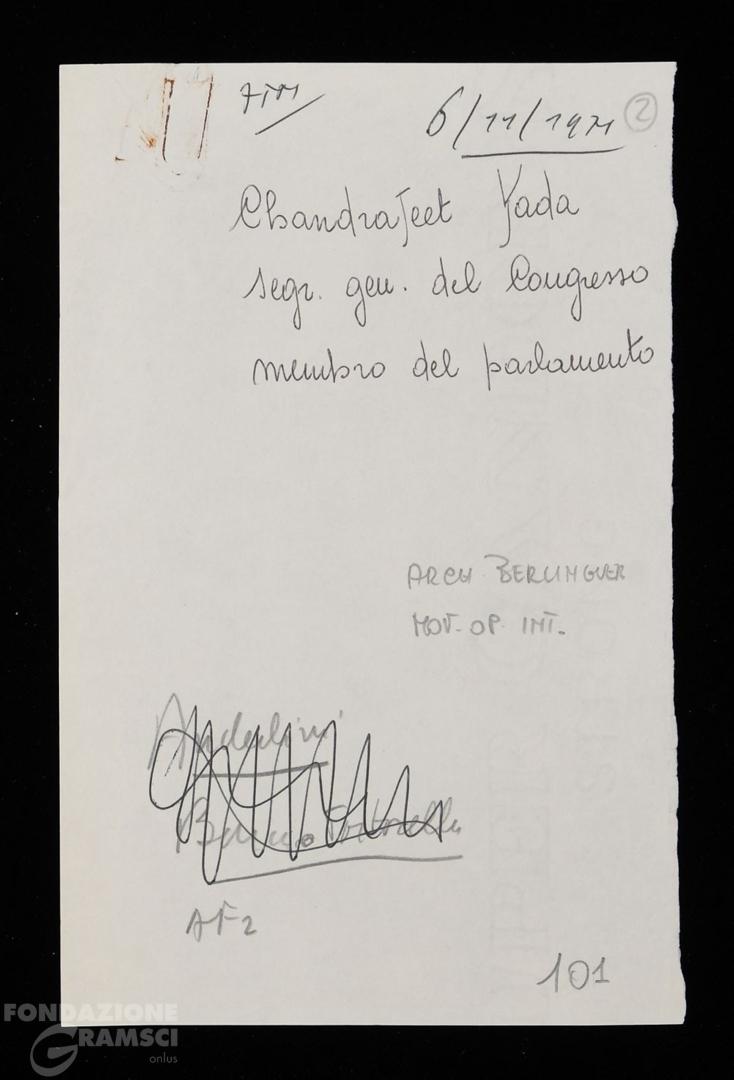 6/11/1971 2
Chandrajeet Yada
segr. gen. del Congresso
membro del parlamento
ARCH. BERLINGUER
MOV. OP. INT.
Anderlini
AF2
101
FONDAZIONE
GRAMSCI
onlus